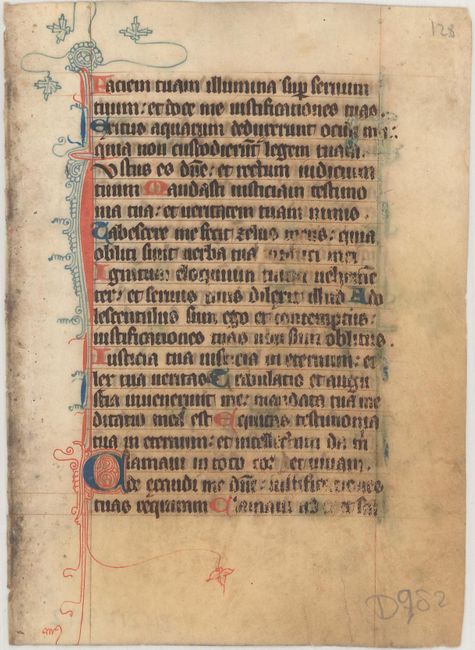 128
Faciem tuam illumina sup seruum
tuum : et doce me iustificationes tuas .
Exitus aquarum deduxerunt oculi mei :
quia non custodierūt legem tuam .
Iustus es dñe : et rectum iudicium
tuum Mandasti iusticiam testimo
nia tua : et ueritatem tuam nimis .
Tabescere me fecit zelus meus : quia
obliti sunt uerba tua inimici mei
Ignitum eloquium tuum uehemē
ter : et seruus tuus dilexit illud Ado
lescentulus sum ego et contemptus :
iustificationes tuas non sum oblitus .
Iusticia tua iusticia in eternum : et
lex tua ueritas Tribulatio et angu
stia inuenerunt me : mandata tua me
ditatio mea est Equitas testimonia
tua in eternum : et intellectum da m
Clamaui in toto cor et uiuam .
de exaudi me dñe : iustificationes
tuas requiram Clamaui ad te
D982